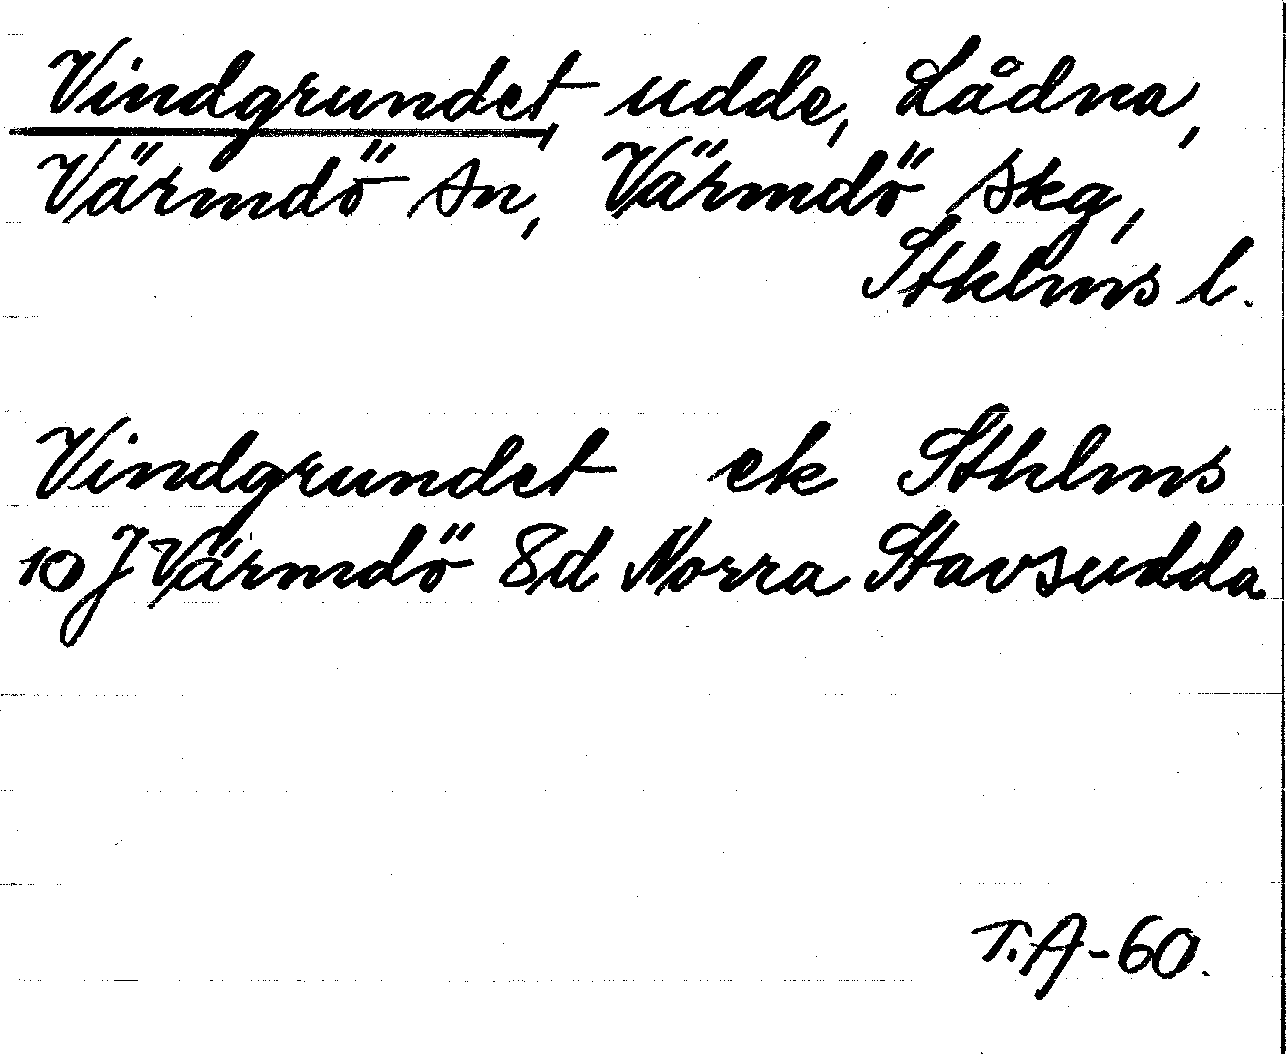 Vindgrundet, udde, Lådna,
Värmdö sn, Värmdö skg,
Sthlms l.
Vindgrundet ek Sthlms
10J Värmdö 8d Norra Stavsudda
T.A-60.